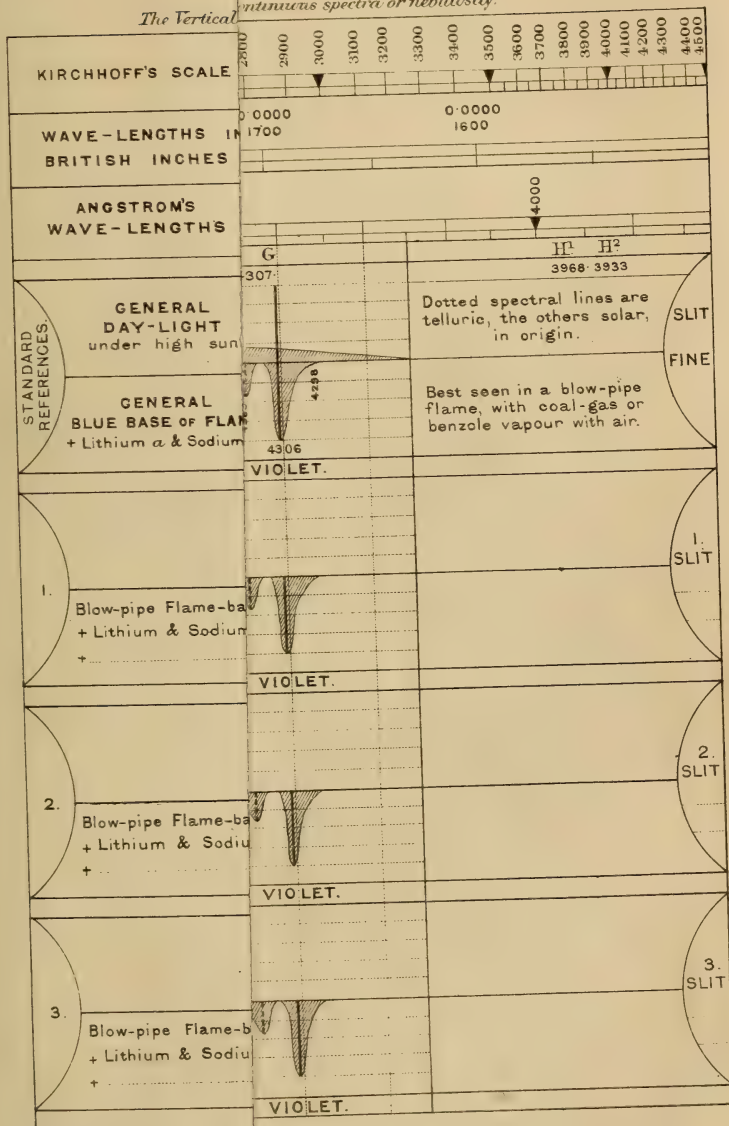 The Vertical
ontinuous spectra or nebulosity.
KIRCHHOFF'S SCALE
2800 2900 3000 3100 3200 3300 3400 3500 3600 3700 3800 3900 4000 4100 4200 4300 4400 4500
WAVE-LENGTHS IN
BRITISH INCHES
0·0000 0·0000
1700 1600
ANGSTROM'S
WAVE-LENGTHS
4000
G H¹ H²
307· 3968· 3933
STANDARD
REFERENCES.
GENERAL
DAY-LIGHT
under high sun
Dotted spectral lines are
telluric, the others solar,
in origin.
SLIT
FINE
GENERAL
BLUE BASE OF FLAM
+ Lithium a & Sodium
4298
4306
Best seen in a blow-pipe
flame, with coal-gas or
benzole vapour with air.
VIOLET.
1.
Blow-pipe Flame-ba
+ Lithium & Sodium
+
1.
SLIT
VIOLET.
2.
Blow-pipe Flame-ba
+ Lithium & Sodiu
+
2.
SLIT
VIOLET.
3.
Blow-pipe Flame-b
+ Lithium & Sodiu
+
3.
SLIT
VIOLET.